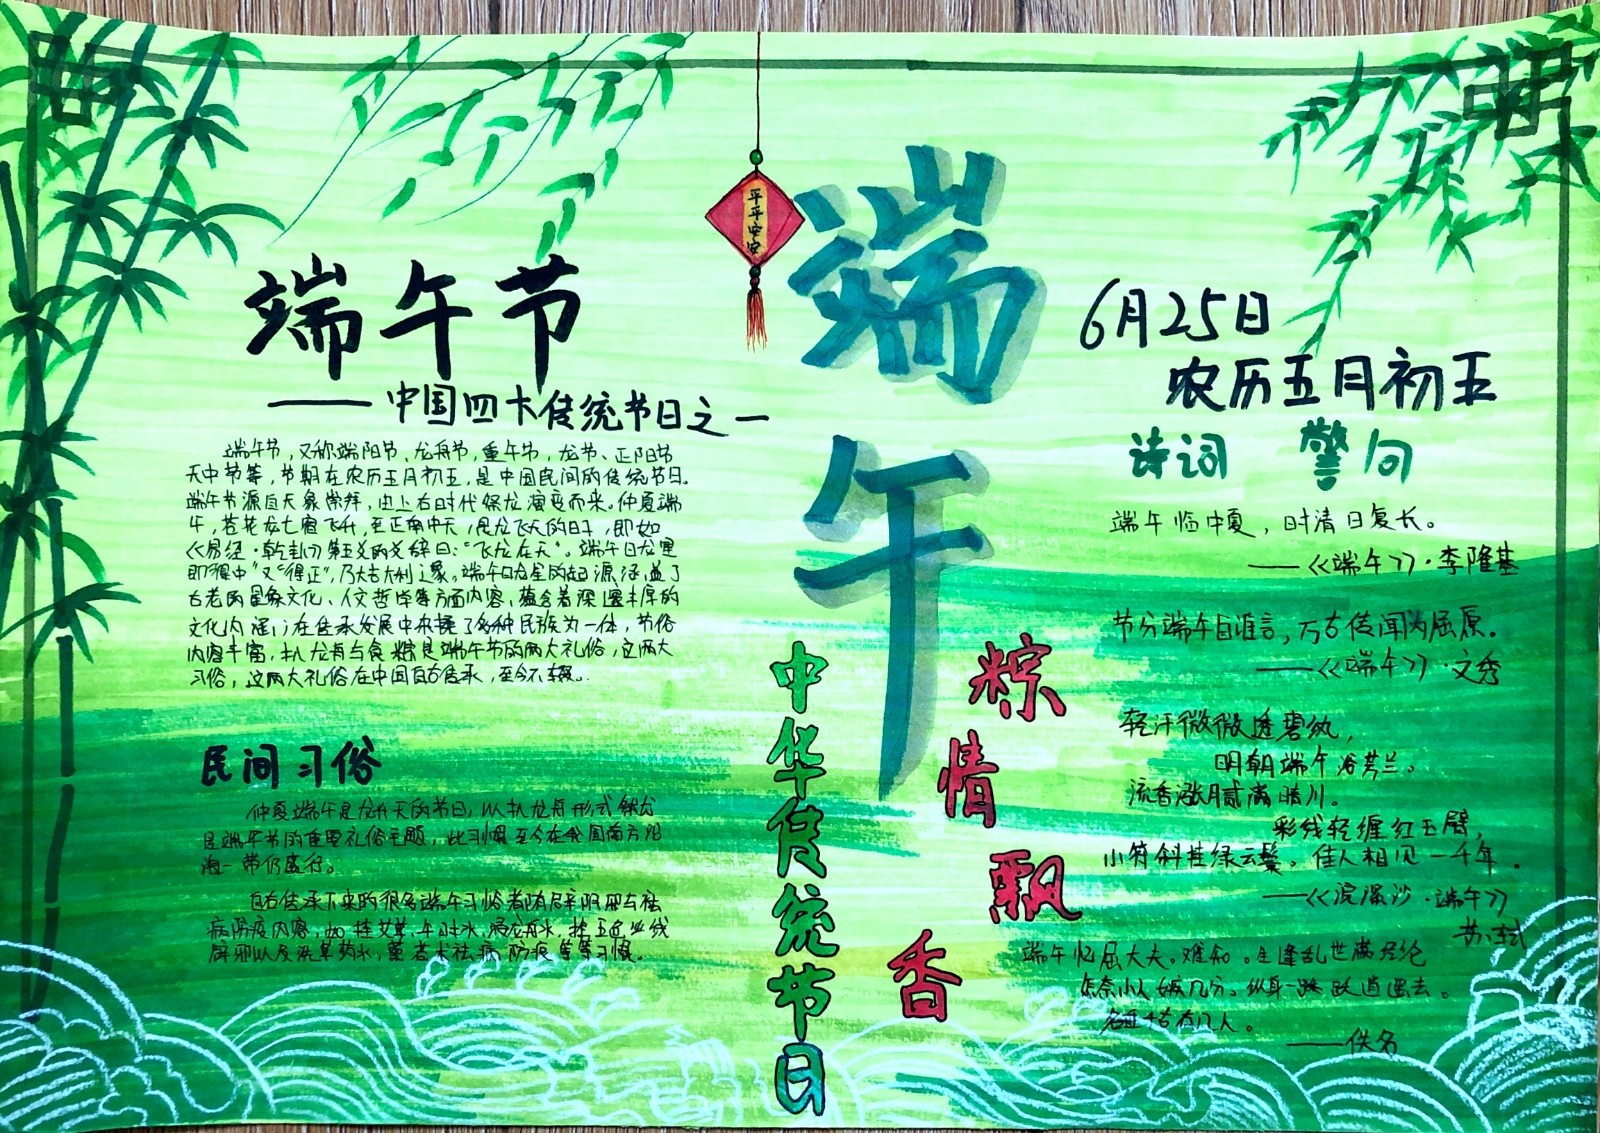 端午节
——中国四大传统节日之一
端午节，又称端阳节、龙舟节，重午节，龙节、正阳节
天中节等，节期在农历五月初五，是中国民间的传统节日。
端午节源自天象崇拜，由上古时代祭龙演变而来。仲夏端
午，苍龙七宿飞升，至正南中天，是龙飞天的日子，即如
《易经·乾卦》第五爻的爻辞曰：“飞龙在天”。端午日龙星
即“得中”又“得正”，乃大吉大利之象。端午日龙星的起源涵盖了
古老的星象文化、人文哲学等方面内容，蕴含着深邃丰厚的
文化内涵；在传承发展中杂揉了多种民族为一体，节俗
内容丰富，扒龙舟与食粽是端午节的两大礼俗，这两大
习俗，这两大礼俗在中国自古传承，至今不辍。
民间习俗
仲夏端午是龙升天的节日，以扒龙舟形式祭龙
是端午节的重要礼俗主题，此习惯至今在我国南方沿
海一带仍盛行。
自古传承下来的很多端午习俗都有辟阴邪与祛
病防疫内容，如挂艾草、午时水、浸龙舟水，拴五色丝线
辟邪以及洗草药水，薰苍术祛病防疫等等习惯。
平平安安
端午
中华传统节日
粽情飘香
6月25日
农历五月初五
诗词 警句
端午临中夏，时清日复长。
——《端午》·李隆基
节分端午自谁言，万古传闻为屈原。
——《端午》·文秀
轻汗微微透碧纨，
明朝端午浴芳兰。
流香涨腻满晴川。
彩线轻缠红玉臂，
小符斜挂绿云鬟。佳人相见一千年。
——《浣溪沙·端午》
苏轼
端午忆屈大夫。难知。生逢乱世满经纶
怎奈小人嫉几分。纵身一跳
名垂千古有几人。
——佚名